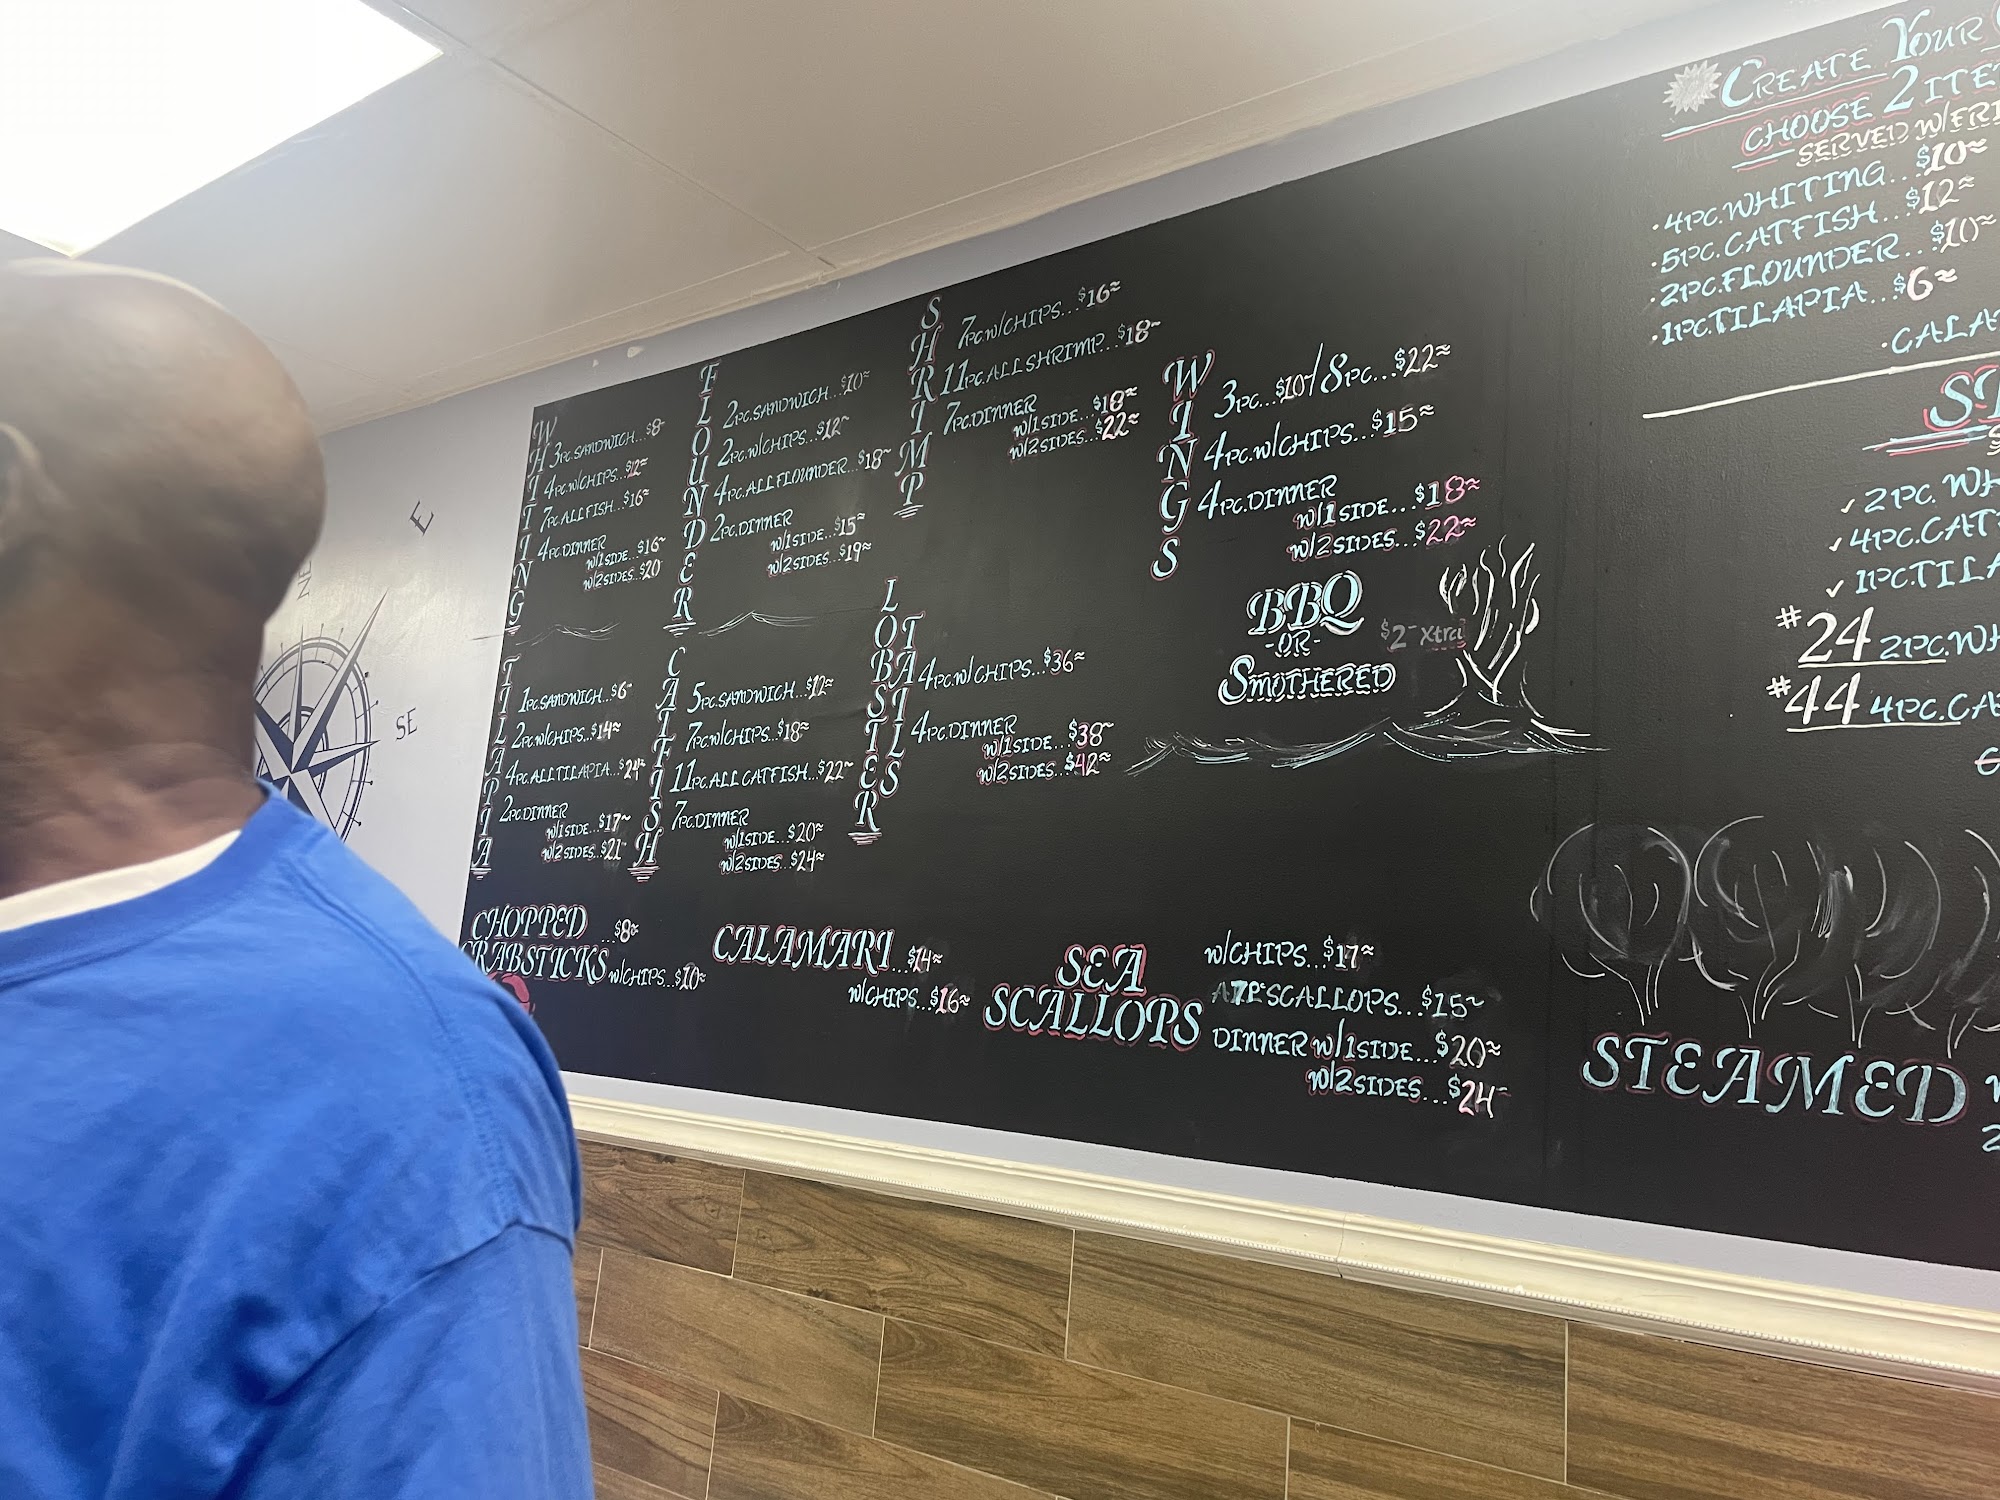 WHITING
3PC.SANDWICH...$8
4PC.W/CHIPS...$12
7PC ALL FISH...$16
4PC.DINNER
W/1SIDE...$16
W/2SIDES...$20
FLOUNDER
2PC.SANDWICH...$10
2PC.W/CHIPS...$12
4PC.ALL FLOUNDER...$18
2PC.DINNER
W/1SIDE...$15
W/2SIDES...$19
SHRIMP
7PC.W/CHIPS...$16
11PC.ALL SHRIMP...$18
7PC.DINNER
W/1SIDE...$18
W/2SIDES...$22
WINGS
3PC...$10/8PC...$22
4PC.W/CHIPS...$15
4PC.DINNER
W/1SIDE...$18
W/2SIDES...$22
BBQ
-OR-
SMOTHERED
$2 Xtra
TILAPIA
1PC.SANDWICH...$6
2PC.W/CHIPS...$14
4PC.ALL TILAPIA...$24
2PC.DINNER
W/1SIDE...$17
W/2SIDES...$21
CATFISH
5PC.SANDWICH...$12
7PC.W/CHIPS...$18
11PC.ALL CATFISH...$22
7PC.DINNER
W/1SIDE...$20
W/2SIDES...$24
LOBSTER
TAILS
4PC.W/CHIPS...$36
4PC.DINNER
W/1SIDE...$38
W/2SIDES...$42
CHOPPED
CRABSTICKS ...$8
W/CHIPS...$10
CALAMARI...$14
W/CHIPS...$16
SEA
SCALLOPS
W/CHIPS...$17
SCALLOPS...$15
DINNER W/1SIDE...$20
W/2SIDES...$24
CREATE YOUR
CHOOSE 2
SERVED
•4PC.WHITING...$10
•5PC.CATFISH...$12
•2PC.FLOUNDER...$10
•1PC.TILAPIA...$6
✓ 2PC.
✓ 4PC.
✓ 1PC.
#24 2PC.
#44 4PC.
STEAMED
E
NE
SE